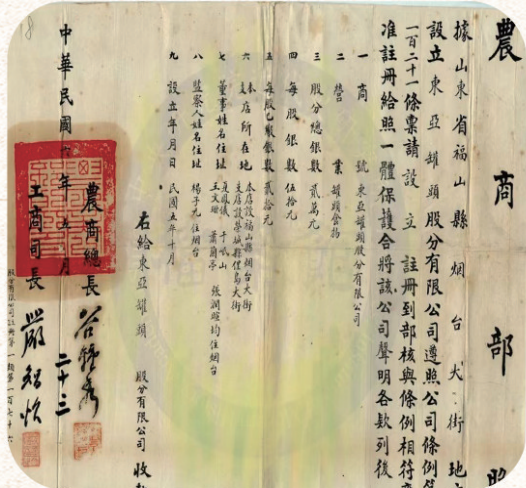 農商部
據山東省福山縣烟台大街地
設立東亞罐頭股份有限公司遵照公司條例第
一百二十一條禀請設立註冊到部核與條例相符
准註冊給照一體保護合將該公司聲明各欵列後
一 商號 東亞罐頭股份有限公司
二 營業 罐頭食物
三 股分總銀數 貳萬元
四 每股銀數 伍拾元
五 每股已繳銀數 貳拾元
六 本店支店所在地 本店設福山縣烟台大街 支店設蓬城縣 島大街
七 董事姓名住址 王文 蕭蘭亭 張潤暄均住烟台
八 監察人姓名住址 楊子九住烟台
九 設立年月日 民國五年十月
右給東亞罐頭股份有限公司收
中華民國六年五月二十三
農商總長 谷鍾秀
工商司長 嚴智怡